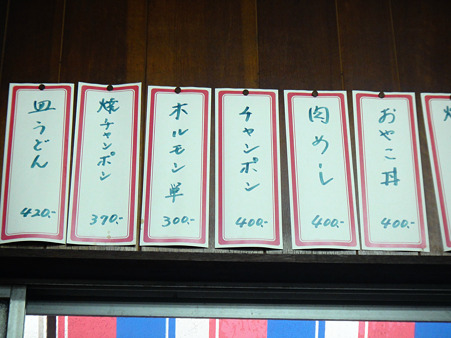 皿うどん
420.-
焼チャンポン
390.-
ホルモン単
300.-
チャンポン
400.-
肉めし
400.-
おやこ丼
400.-